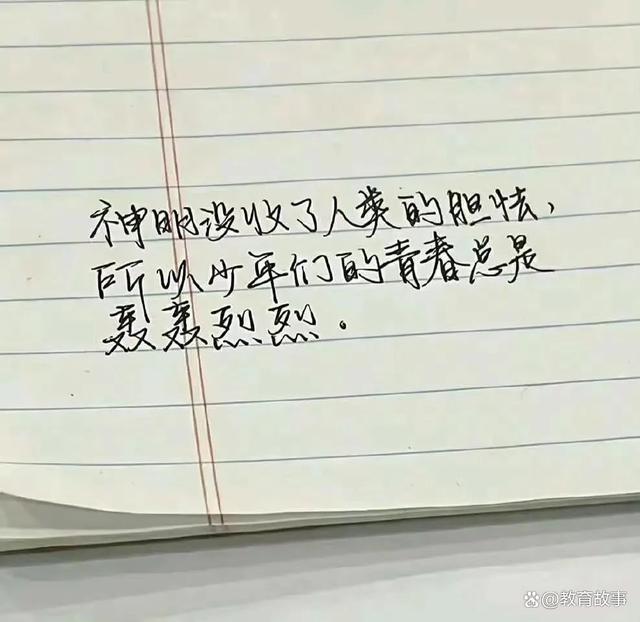 神明没收了人类的胆怯，
所以少年们的青春总是
轰轰烈烈。
@教育故事